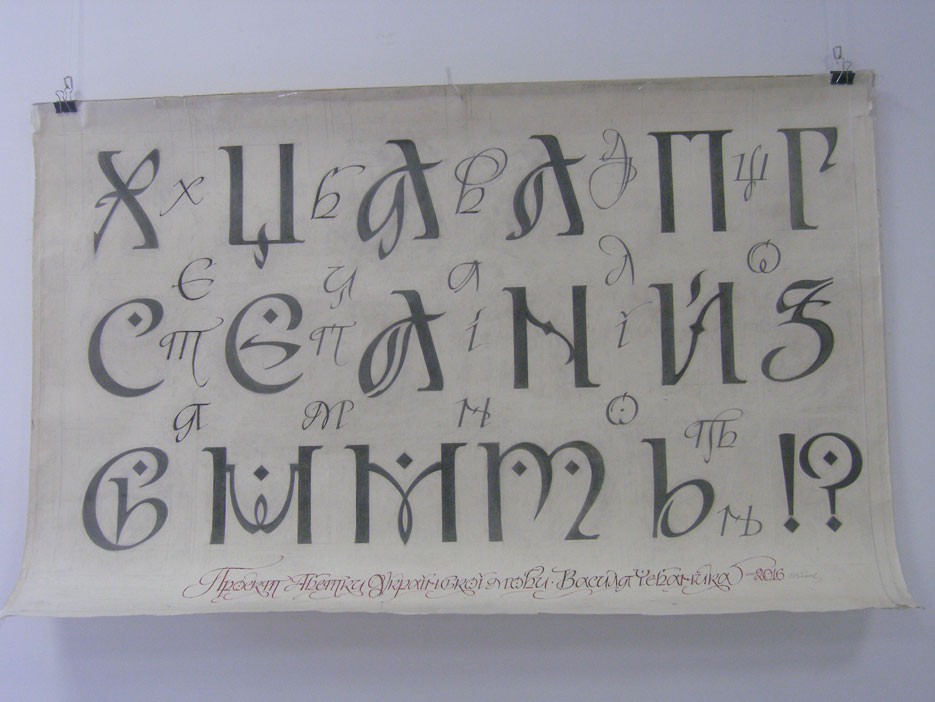 Х х Ц Б А В А Д П Щ Г
Є Ц а л О
С т Є п А і N ї Й З
я м н О
Б М М М Ь !?
нь
Проєкт Абетки Української мови. Василя Чебаника – 2016